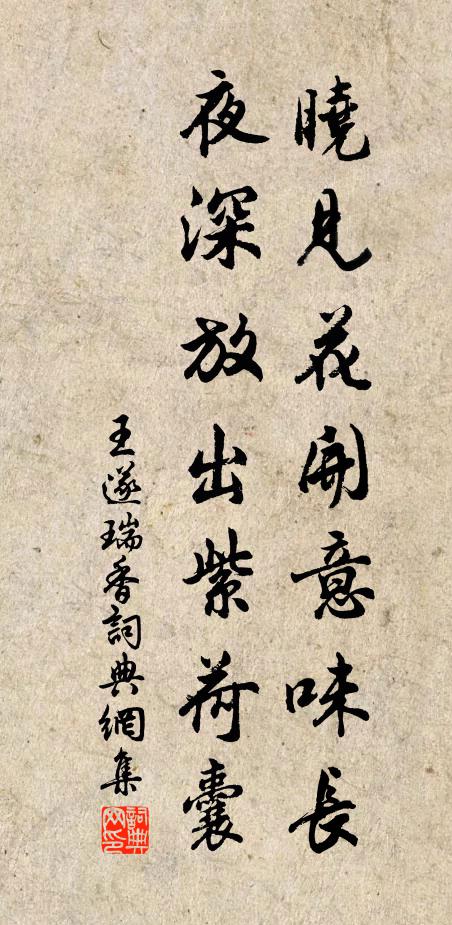 曉見花開意味長
夜深放出紫荷囊
王遂瑞香詞典網集
詞典网印